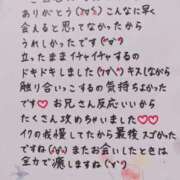 ありがとう(^з^)こんなに早く
会えると思ってなかったから
うれしかったです(^з^)
立ったままイチャイチャするの
ドキドキしました(^з^)キスしながら
触り合いっこするの気持ちよかった
です♡♡お兄さん反応いいから
たくさん攻めちゃいました♡♡
イクの我慢してたから最後スゴかった
ですね(^з^)またお会いしたときは
全力で癒しますね(^з^)